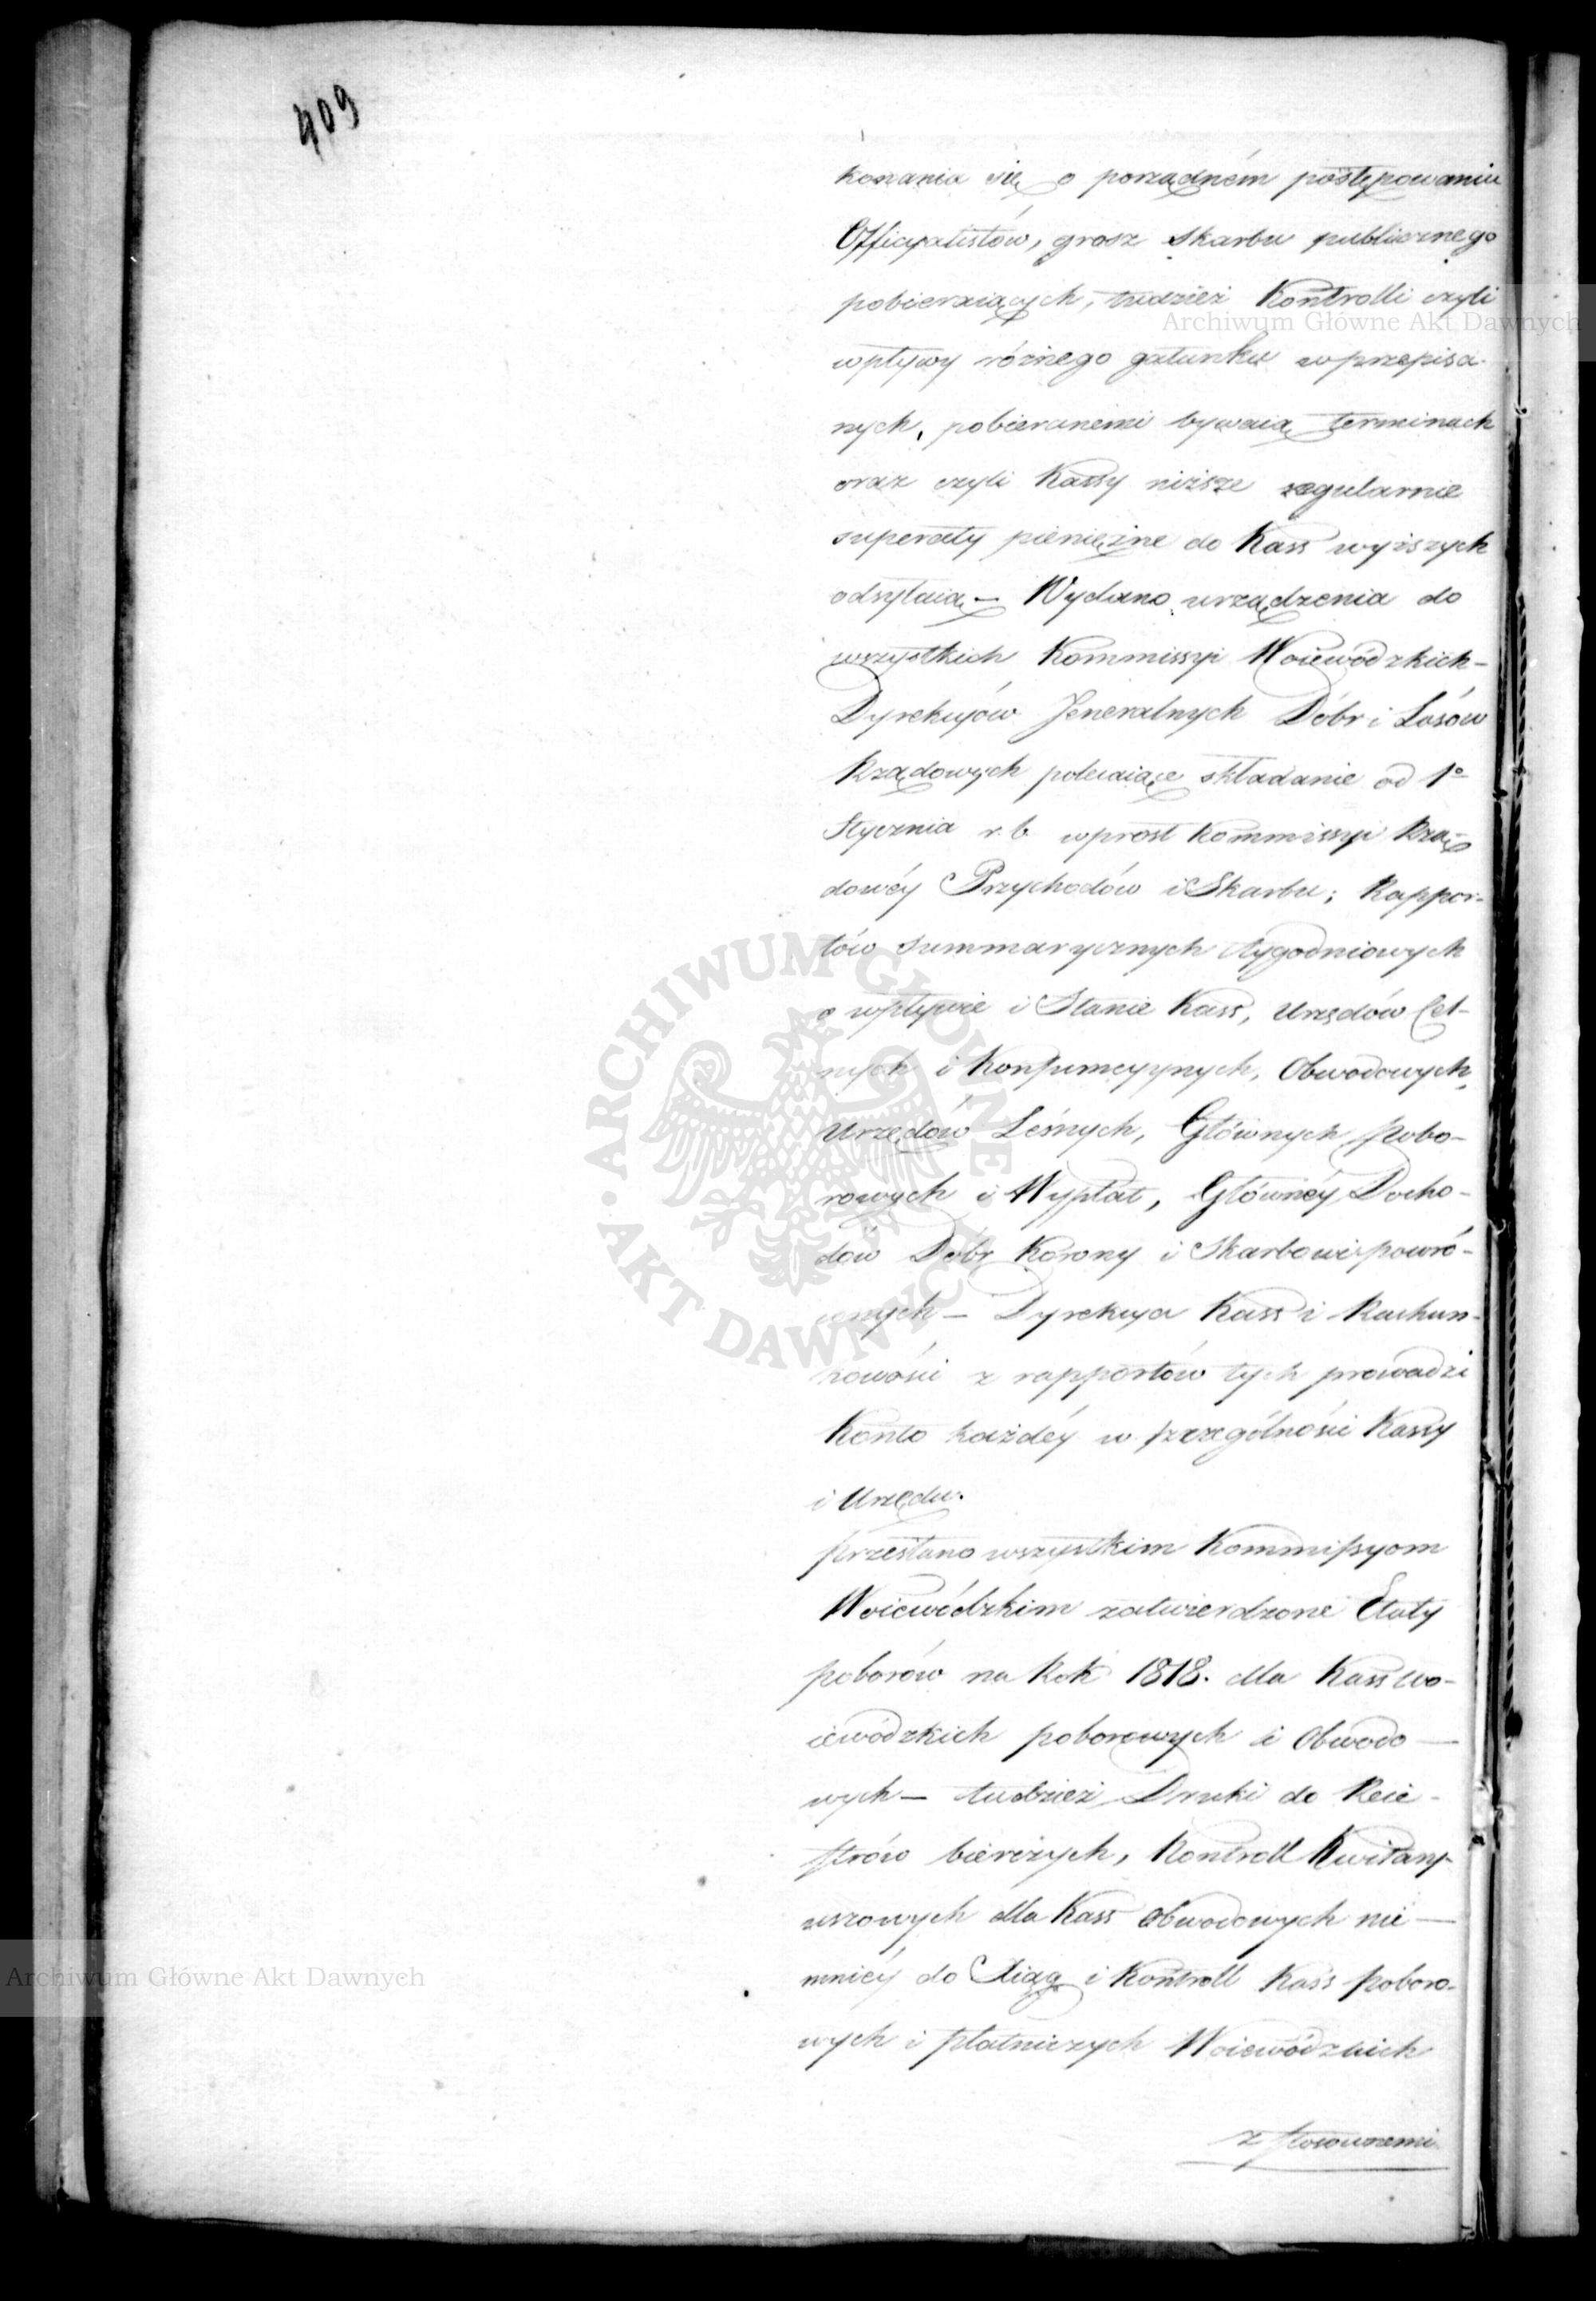 409
konania się o porządném postępowaniu
Officyalistów, grosz skarbu publicznego
pobieraiących, tudzież Kontrolli czyli
wpływy różnego gatunku w przepisa-
nych, pobieranemi bywaią terminach
oraz czyli Kassy niższe regularnie
superaty pieniężne do Kass wyższych
odsyłaią – Wydano urządzenia do
wszystkich Kommissyi Woiewódzkich –
Dyrekcyów Jeneralnych Dóbr i Lasów
Rządowych polecaiące składanie od 1º
Stycznia r. b. wprost Kommissyi Rzą-
dowéy Przychodów i Skarbu; Rappor-
tów summarycznych tygodniowych
o wpływie i Stanie Kass, Urzędów Cel-
nych i Konsumcyynych, Obwodowych,
Urzędów Leśnych, Głównych pobo-
rowych i Wypłat, Główney Docho-
dów Dóbr Korony i Skarbowi powró-
conych – Dyrekcya Kass i Rachun-
kowości z rapportów tych prowadzi
Konto każdéy w szczególności Kassy
i Urzędu.
przesłano wszystkim Kommissyom
Woiewódzkim zatwierdzone Etaty
poborów na Rok 1818. dla Kass Wo-
iewódzkich poborowych i Obwodo –
wych – tudzież Druki do Reie-
strów bierczych, Kontroll Kwitany-
uszowych dla Kass Obwodowych nie –
mniéy do Xiąg i Kontroll Kass poboro-
wych i płatniczych Woiewódzkich
z stosownemi
Archiwum Główne Akt Dawnych
ARCHIWUM GŁÓWNE · AKT DAWNYCH ·
Archiwum Główne Akt Dawnych